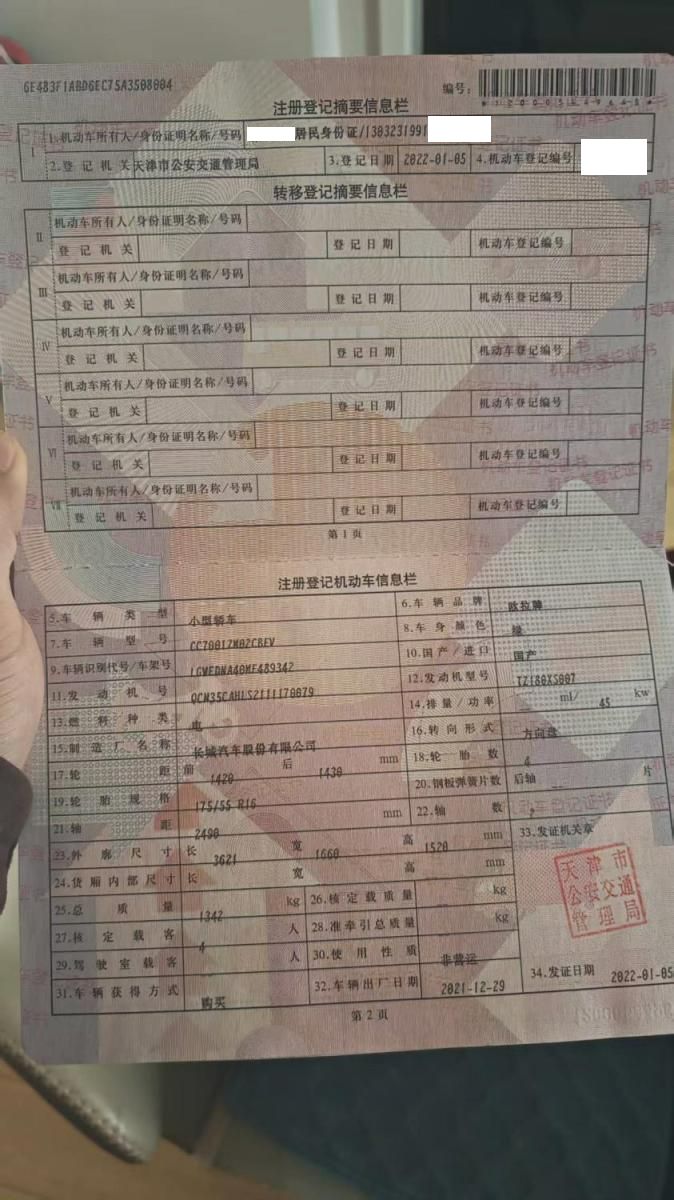 GE4B3F1ABD6EC75A3508804
编号:
注册登记摘要信息栏
I 1.机动车所有人/身份证明名称/号码 居民身份证/1303231991
2.登记机关 天津市公安交通管理局 3.登记日期 2022-01-05 4.机动车登记编号
转移登记摘要信息栏
II 机动车所有人/身份证明名称/号码
登记机关 登记日期 机动车登记编号
III 机动车所有人/身份证明名称/号码
登记机关 登记日期 机动车登记编号
IV 机动车所有人/身份证明名称/号码
登记机关 登记日期 机动车登记编号
V 机动车所有人/身份证明名称/号码
登记机关 登记日期 机动车登记编号
VI 机动车所有人/身份证明名称/号码
登记机关 登记日期 机动车登记编号
VII 机动车所有人/身份证明名称/号码
登记机关 登记日期 机动车登记编号
第1页
注册登记机动车信息栏
5.车辆类型 小型轿车 6.车辆品牌 欧拉牌
7.车辆型号 CC7001ZM02CBEV 8.车身颜色 绿
9.车辆识别代号/车架号 LGWEDNA40ME489342 10.国产/进口 国产
11.发动机号 QCM35CAHLS2111170079 12.发动机型号 TZ180XS007
13.燃料种类 电 14.排量/功率 ml/ 45 kw
15.制造厂名称 长城汽车股份有限公司 16.转向形式 方向盘
17.轮距 前 1420 后 1430 mm 18.轮胎数 4
19.轮胎规格 175/55 R16 20.钢板弹簧片数 后轴 -- 片
21.轴距 2490 mm 22.轴数
23.外廓尺寸 长 3621 宽 1660 高 1520 mm 33.发证机关章
24.货厢内部尺寸 长 宽 高 mm
25.总质量 1342 kg 26.核定载质量 kg
27.核定载客 4 人 28.准牵引总质量 kg
29.驾驶室载客 人 30.使用性质 非营运
31.车辆获得方式 购买 32.车辆出厂日期 2021-12-29 34.发证日期 2022-01-05
天津市
公安交通
管理局
第2页